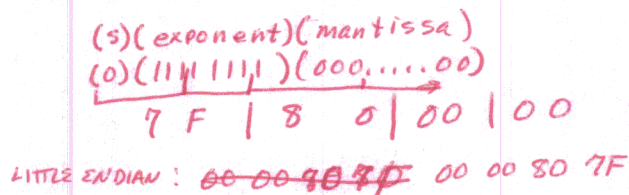 (s)(exponent)(mantissa)
(0)(11111111)(000.....00)
7 F | 8 0 | 00 | 00
LITTLE ENDIAN : 00 00 80 7F 00 00 80 7F